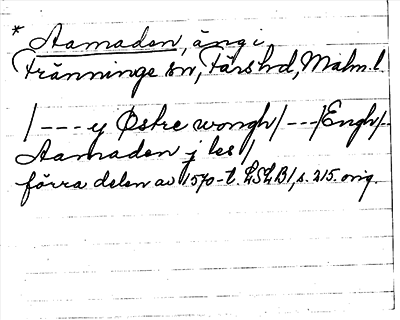 * Aamaden, äng i
Tränninge sn, Färs hd, Malm. l.
/--- y Østre wongh/---/Engh/--
Aamaden j les/
förra delen av 1570-t. LSLB1, s. 215. orig.